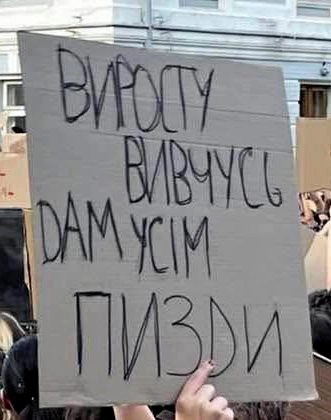 ВИРОСТУ
ВИВЧУСЬ
ДАМ УСІМ
ПИЗДИ